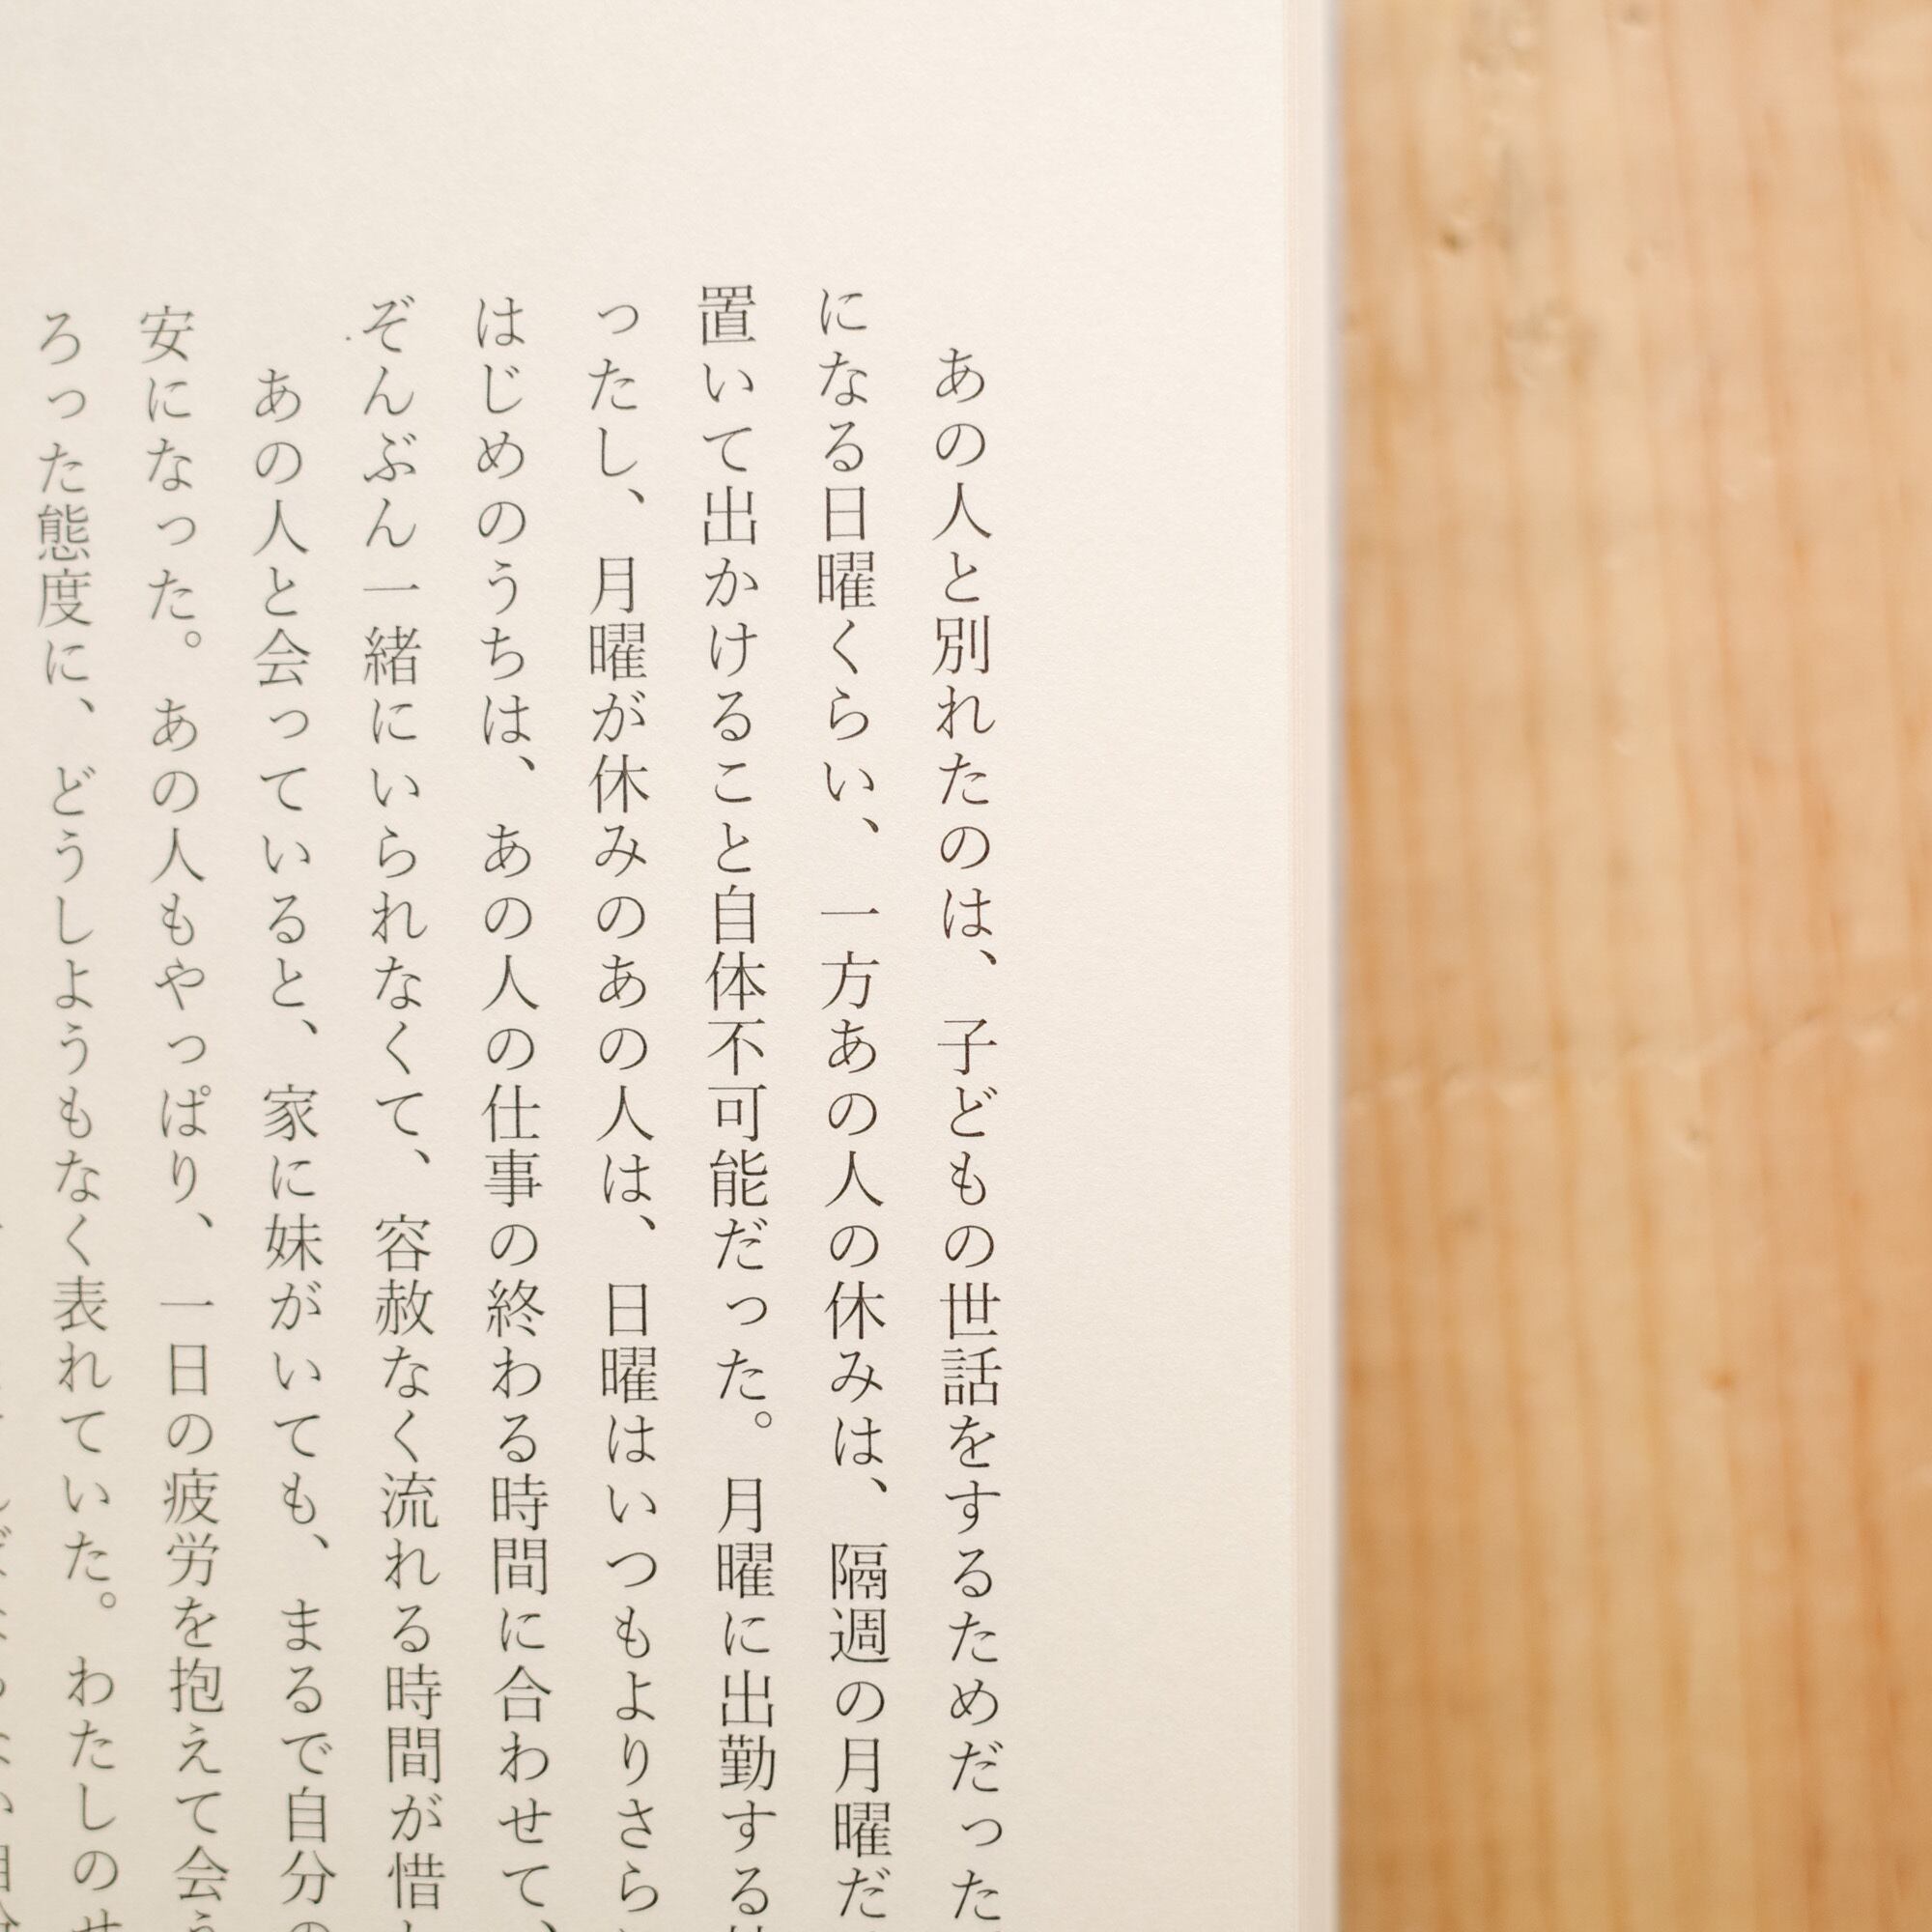 あの人と別れたのは、子どもの世話をするためだった
になる日曜くらい、一方あの人の休みは、隔週の月曜だ
置いて出かけること自体不可能だった。月曜に出勤する
ったし、月曜が休みのあの人は、日曜はいつもよりさら
はじめのうちは、あの人の仕事の終わる時間に合わせて、
ぞんぶん一緒にいられなくて、容赦なく流れる時間が惜
あの人と会っていると、家に妹がいても、まるで自分の
安になった。あの人もやっぱり、一日の疲労を抱えて会う
ろった態度に、どうしようもなく表れていた。わたしのせ